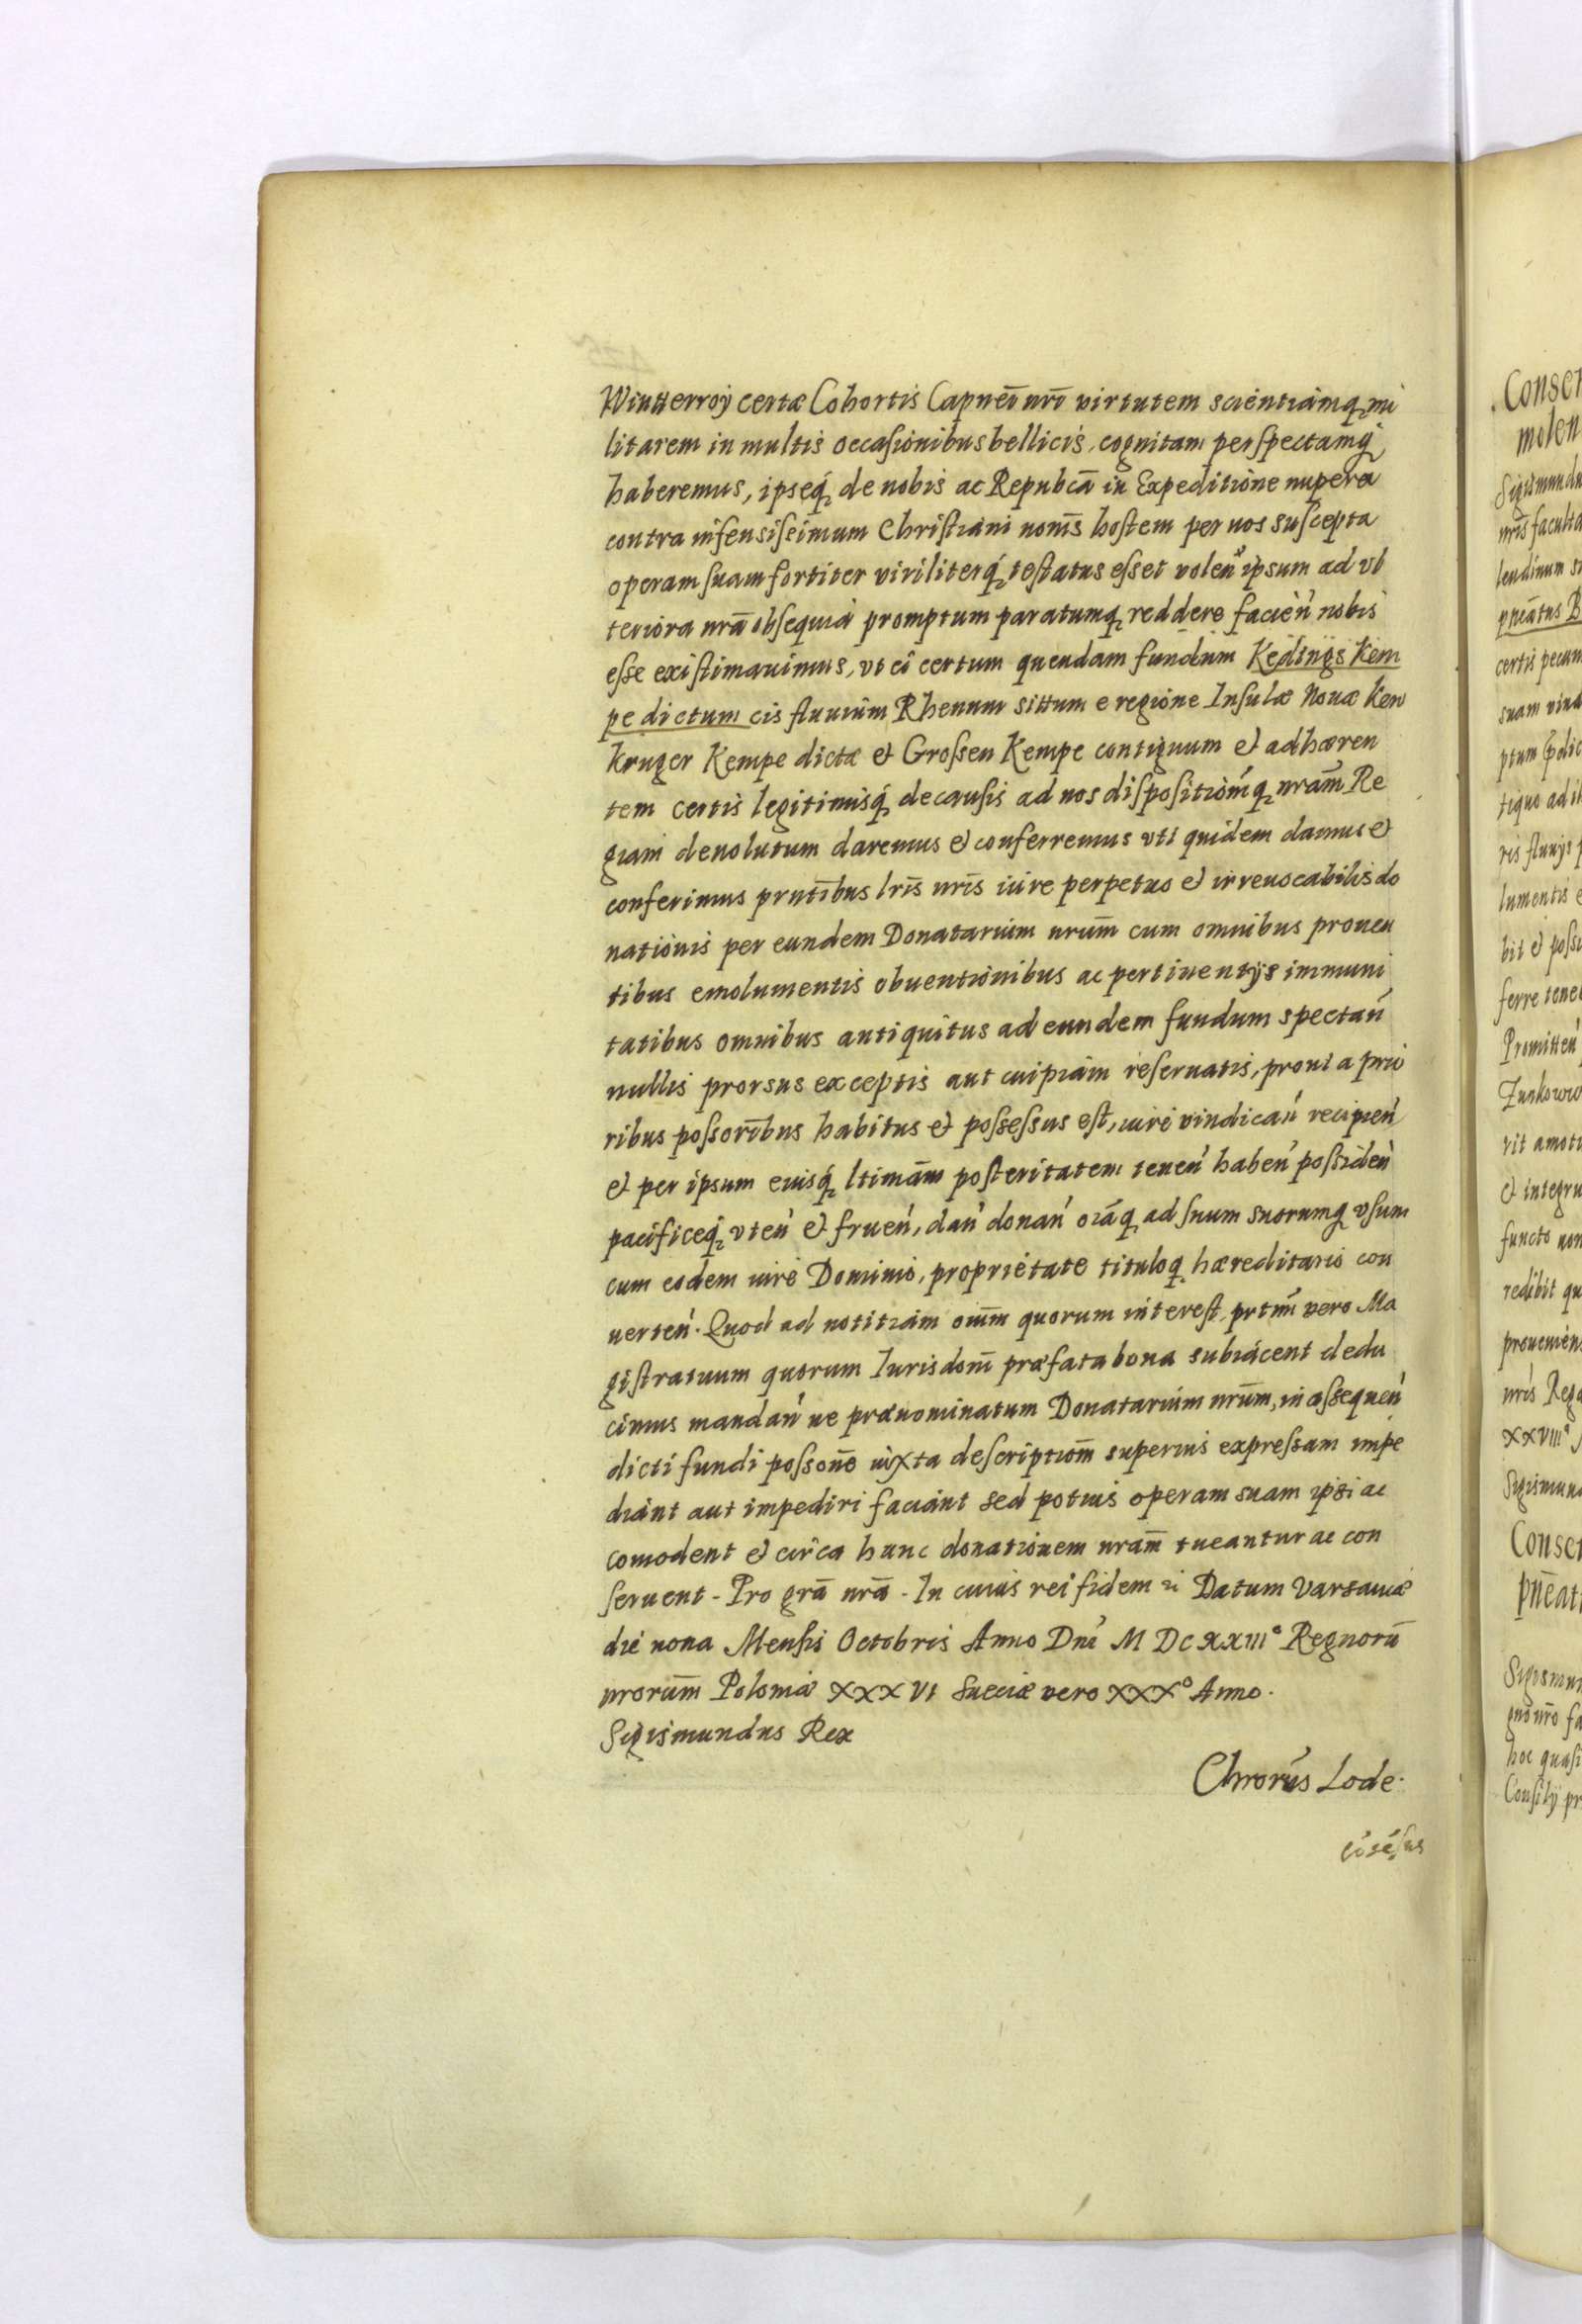 Wintterroÿ certæ Cohortis Capnei nri virtutem scientiamq mi
litarem in multis occasionibus bellicis, cognitam perspectamq
haberemus, ipseq de nobis ac Repubca in Expeditione nupera
contra infensissimum Christiani nomis hostem per nos suscepta
operam suam fortiter viriliterq testatus esset volen ipsum ad vl
teriora nra obsequia promptum paratumq reddere facien nobis
esse existimauimus, vt ei certum quendam fundum Kedings Kem
pe dictum cis fluuium Rhenum sittum e regione Insulæ Nouæ Ken
Kruger Kempe dictæ et Grossen Kempe contiguum et adhæren
tem certis legitimisq de causis ad nos dispositiomq nram Re
giam deuolutum daremus et conferremus vti quidem damus et
conferimus prntibus lris nris iure perpetuo et irreuocabilis do
nationis per eundem Donatarium nrum cum omnibus prouen
tibus emolumentis obuentionibus ac pertinentÿs immuni
tatibus omnibus antiquitus ad eundem fundum spectan
nullis prorsus exceptis aut cuipiam reseruatis, prout a prio
ribus possoribus habitus et possessus est, iure vindican recipien
et per ipsum eiusq ltimam posteritatem tenen haben possiden
pacificeq vten et fruen, dan donan oiaq ad suum suorumq vsum
cum eodem iure Dominio, proprietate tituloq hæreditario con
uerten. Quod ad notitiam oium quorum interest, prtim vero Ma
gistratuum quorum Iurisdom præfata bona subiacent dedu
cimus mandan ne prænominatum Donatarium nrum, in assequen
dicti fundi possone iuxta descriptiom superius expressam impe
diant aut impediri faciant sed potius operam suam ipsi ac
comodent et circa hunc donationem nram tueantur ac con
seruent - Pro gra nra - In cuius rei fidem Datum Varsauiæ
die nona Mensis Octobris Anno Dni M DC XXIII° Regnoru
nrorum Poloniæ XXXVI Sueciæ vero XXX° Anno.
Sigismundus Rex
Chrorus Lode.
cosesus
Conser
molen
Sigismundu
nris faculta
pneatus B
certis pecun
suam vind
ris fluuÿs p
lumentis e
bit et possi
ferre tene
Promitten
rit amoti
et integru
functo non
redibit qu
prouenien
nris Rega
XXVIII°
Sigismund
Conser
pneati
Sigismun
hoc quasi
Consilÿ pr